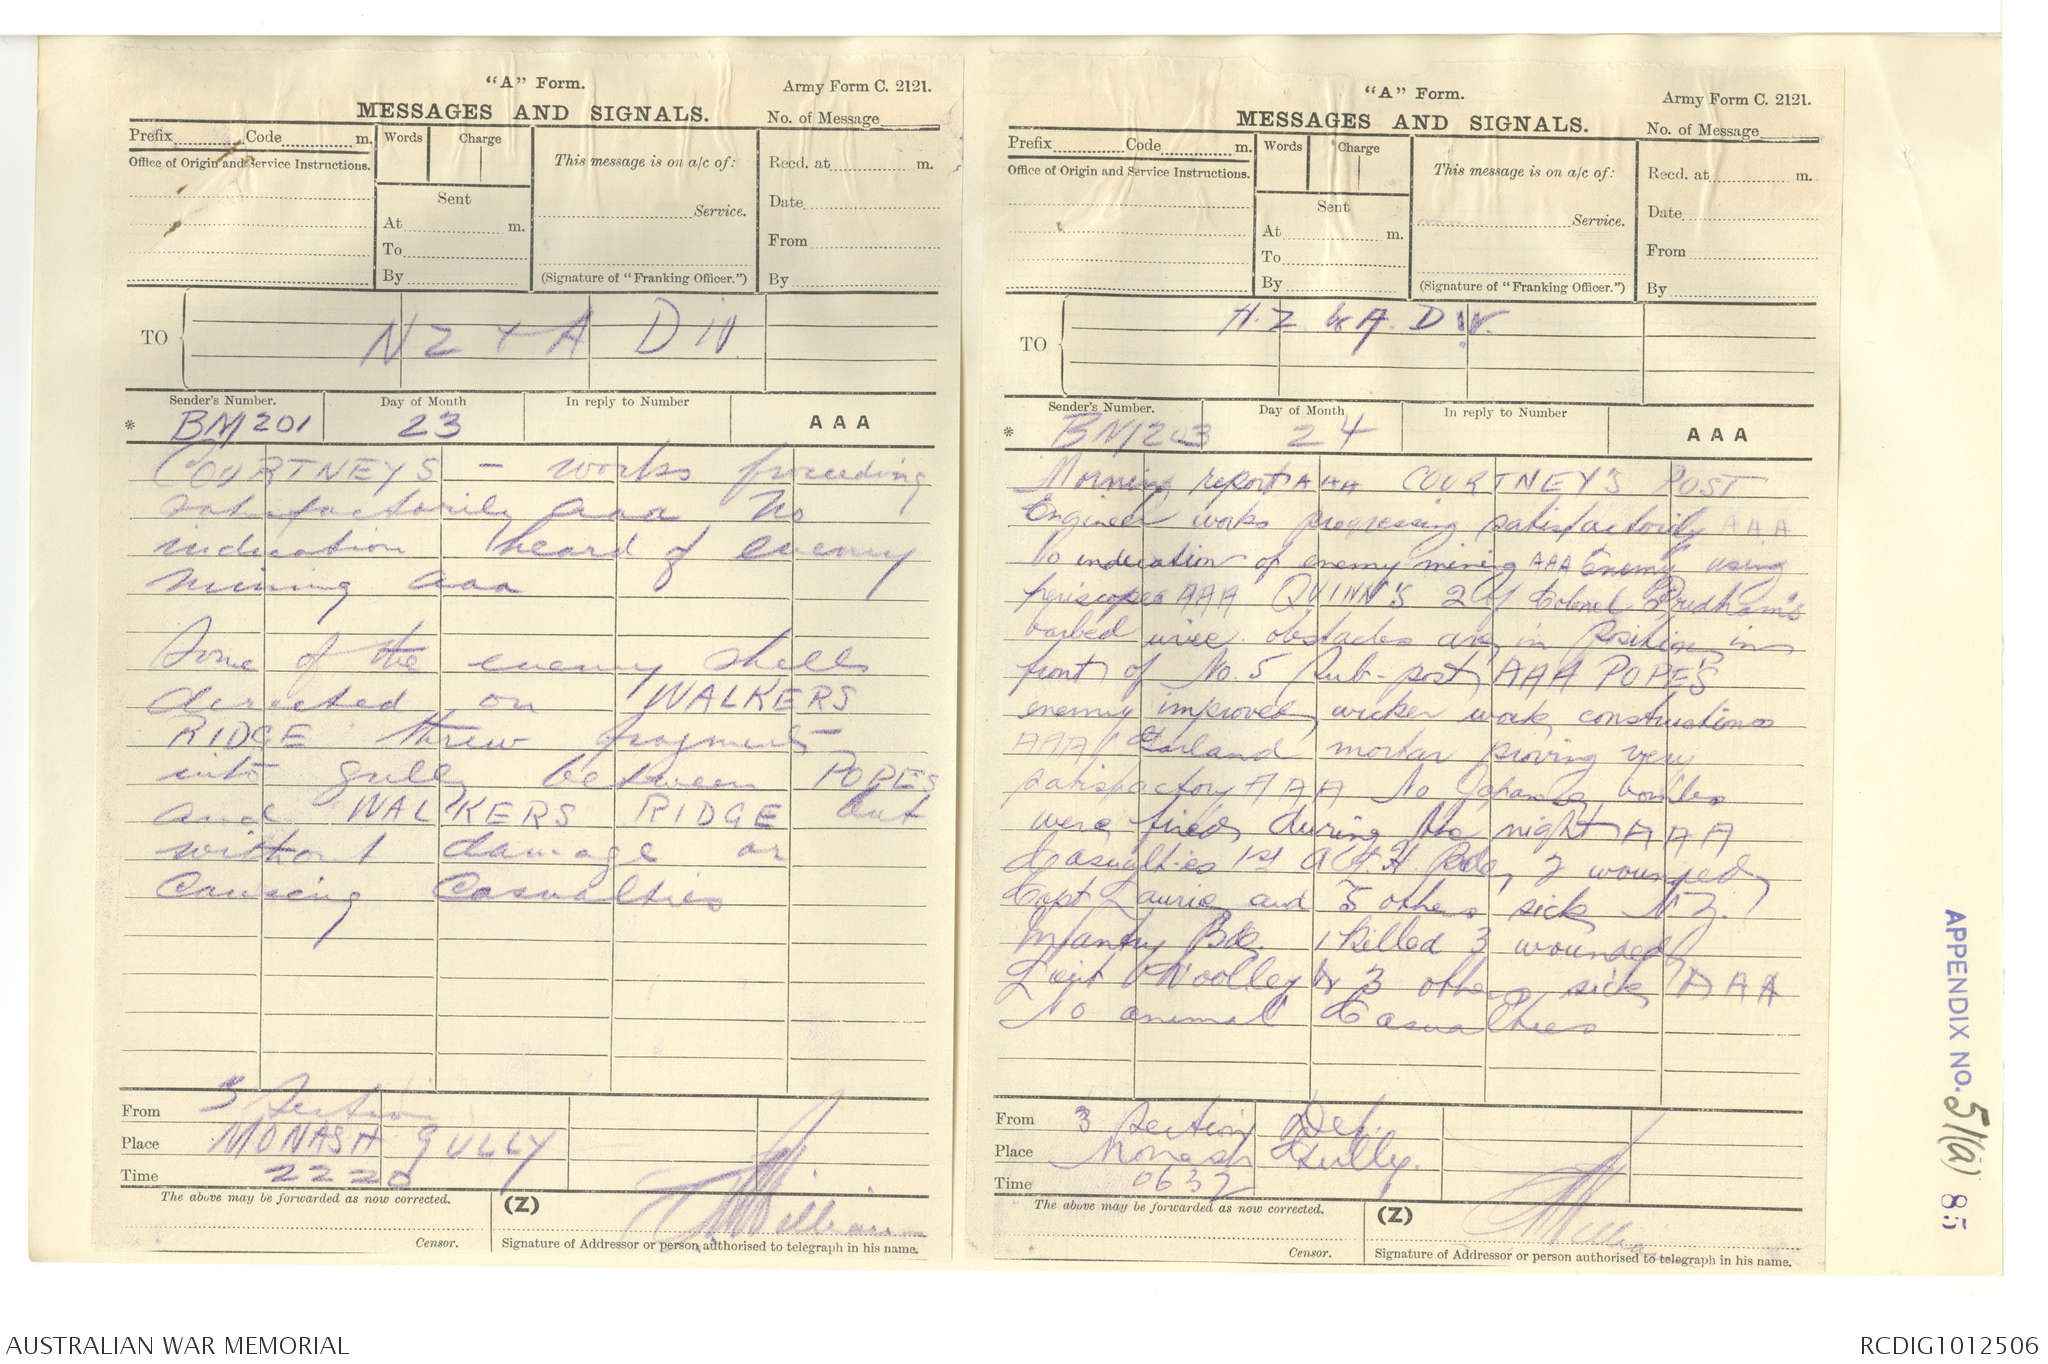 "A" Form.
Army Form C. 2121.
MESSAGES AND SIGNALS.
No. of Message
Prefix Code m.
Words Charge
This message is on a/c of:
Recd. at m.
Office of Origin and Service Instructions.
Sent
Service.
Date
At m.
To
From
By
(Signature of "Franking Officer.")
By
TO
N Z + A DIV.
Sender's Number.
Day of Month
In reply to Number
AAA
* BM201
23
COURTNEYS - works proceeding
satisfactorily aaa No
indication heard of enemy
mining aaa
Some of the enemy shells
directed on WALKERS
RIDGE threw fragments
into gully between POPES
and WALKERS RIDGE but
without damage or
causing casualties
From 3 Section
Place MONASH GULLY
Time 2220
The above may be forwarded as now corrected.
(Z)
Censor.
Signature of Addressor or person authorised to telegraph in his name.
"A" Form.
Army Form C. 2121.
MESSAGES AND SIGNALS.
No. of Message
Prefix Code m.
Words Charge
This message is on a/c of:
Recd. at m.
Office of Origin and Service Instructions.
Sent
Service.
Date
At m.
To
From
By
(Signature of "Franking Officer.")
By
TO
N.Z. & A. DIV.
Sender's Number.
Day of Month
In reply to Number
AAA
* BM203
24
Morning report AAA COURTNEY'S POST
Engineer works progressing satisfactorily AAA
No indication of enemy mining AAA Enemy using
periscopes AAA QUINN'S 2 of Colonel Pridham's
barbed wire obstacles are in position in
front of No. 5 Sub-post AAA POPE'S
enemy improved wicker work constructions
AAA Garland mortar proving very
satisfactory AAA No Japanese bombs
were fired during the night AAA
Casualties 1st A.L.H. Bde, 2 wounded
Capt Laurie and 5 others sick N.Z.
Infantry Bde. 1 killed 3 wounded
Lieut Woolley & 3 others sick AAA
No animal Casualties
From 3 Section Def.
Place Monash Gully.
Time 0632
The above may be forwarded as now corrected.
(Z)
Censor.
Signature of Addressor or person authorised to telegraph in his name.
APPENDIX NO. 51(a) 85
AUSTRALIAN WAR MEMORIAL
RCDIG1012506